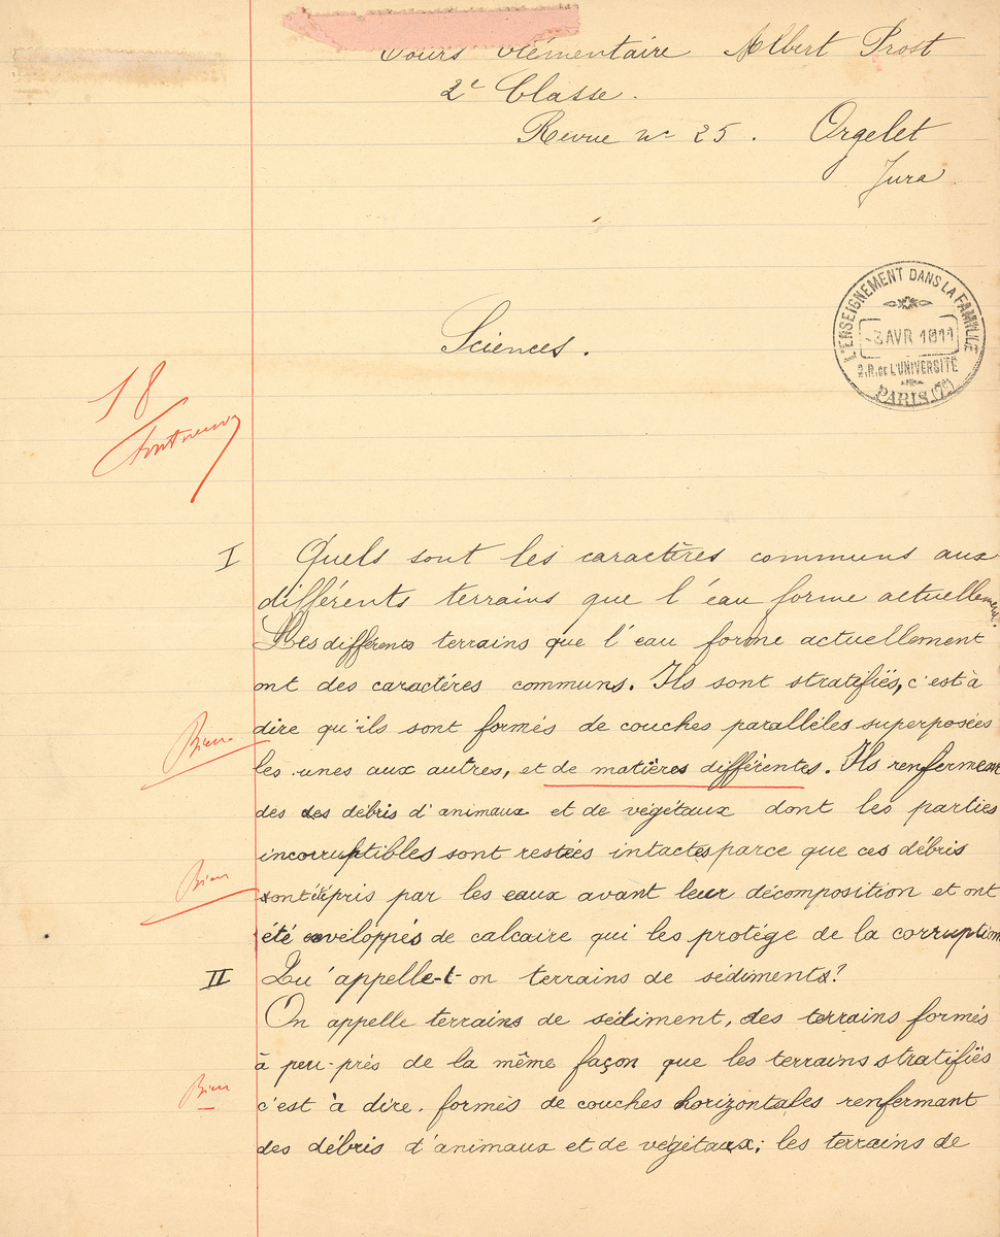 Cours élémentaire Albert Prost
2e Classe.
Revue no 25. Orgelet
Jura
L'ENSEIGNEMENT DANS LA FAMILLE
-3 AVR 1911
2.R.de L'UNIVERSITÉ
PARIS (7e)
Sciences.
18
I Quels sont les caractères communs aux
différents terrains que l'eau forme actuellement.
Les différents terrains que l'eau forme actuellement
ont des caractères communs. Ils sont stratifiés, c'est à
dire qu'ils sont formés de couches parallèles superposées
Bien
les unes aux autres, et de matières différentes. Ils renferment
des des débris d'animaux et de végétaux dont les parties
incorruptibles sont restées intactes parce que ces débris
Bien
sont été pris par les eaux avant leur décomposition et ont
été enveloppés de calcaire qui les protége de la corruption
II Qu'appelle-t-on terrains de sédiments?
On appelle terrains de sédiment, des terrains formés
à peu-près de la même façon que les terrains stratifiés
Bien
c'est à dire. formés de couches horizontales renfermant
des débris d'animaux et de végétaux; les terrains de